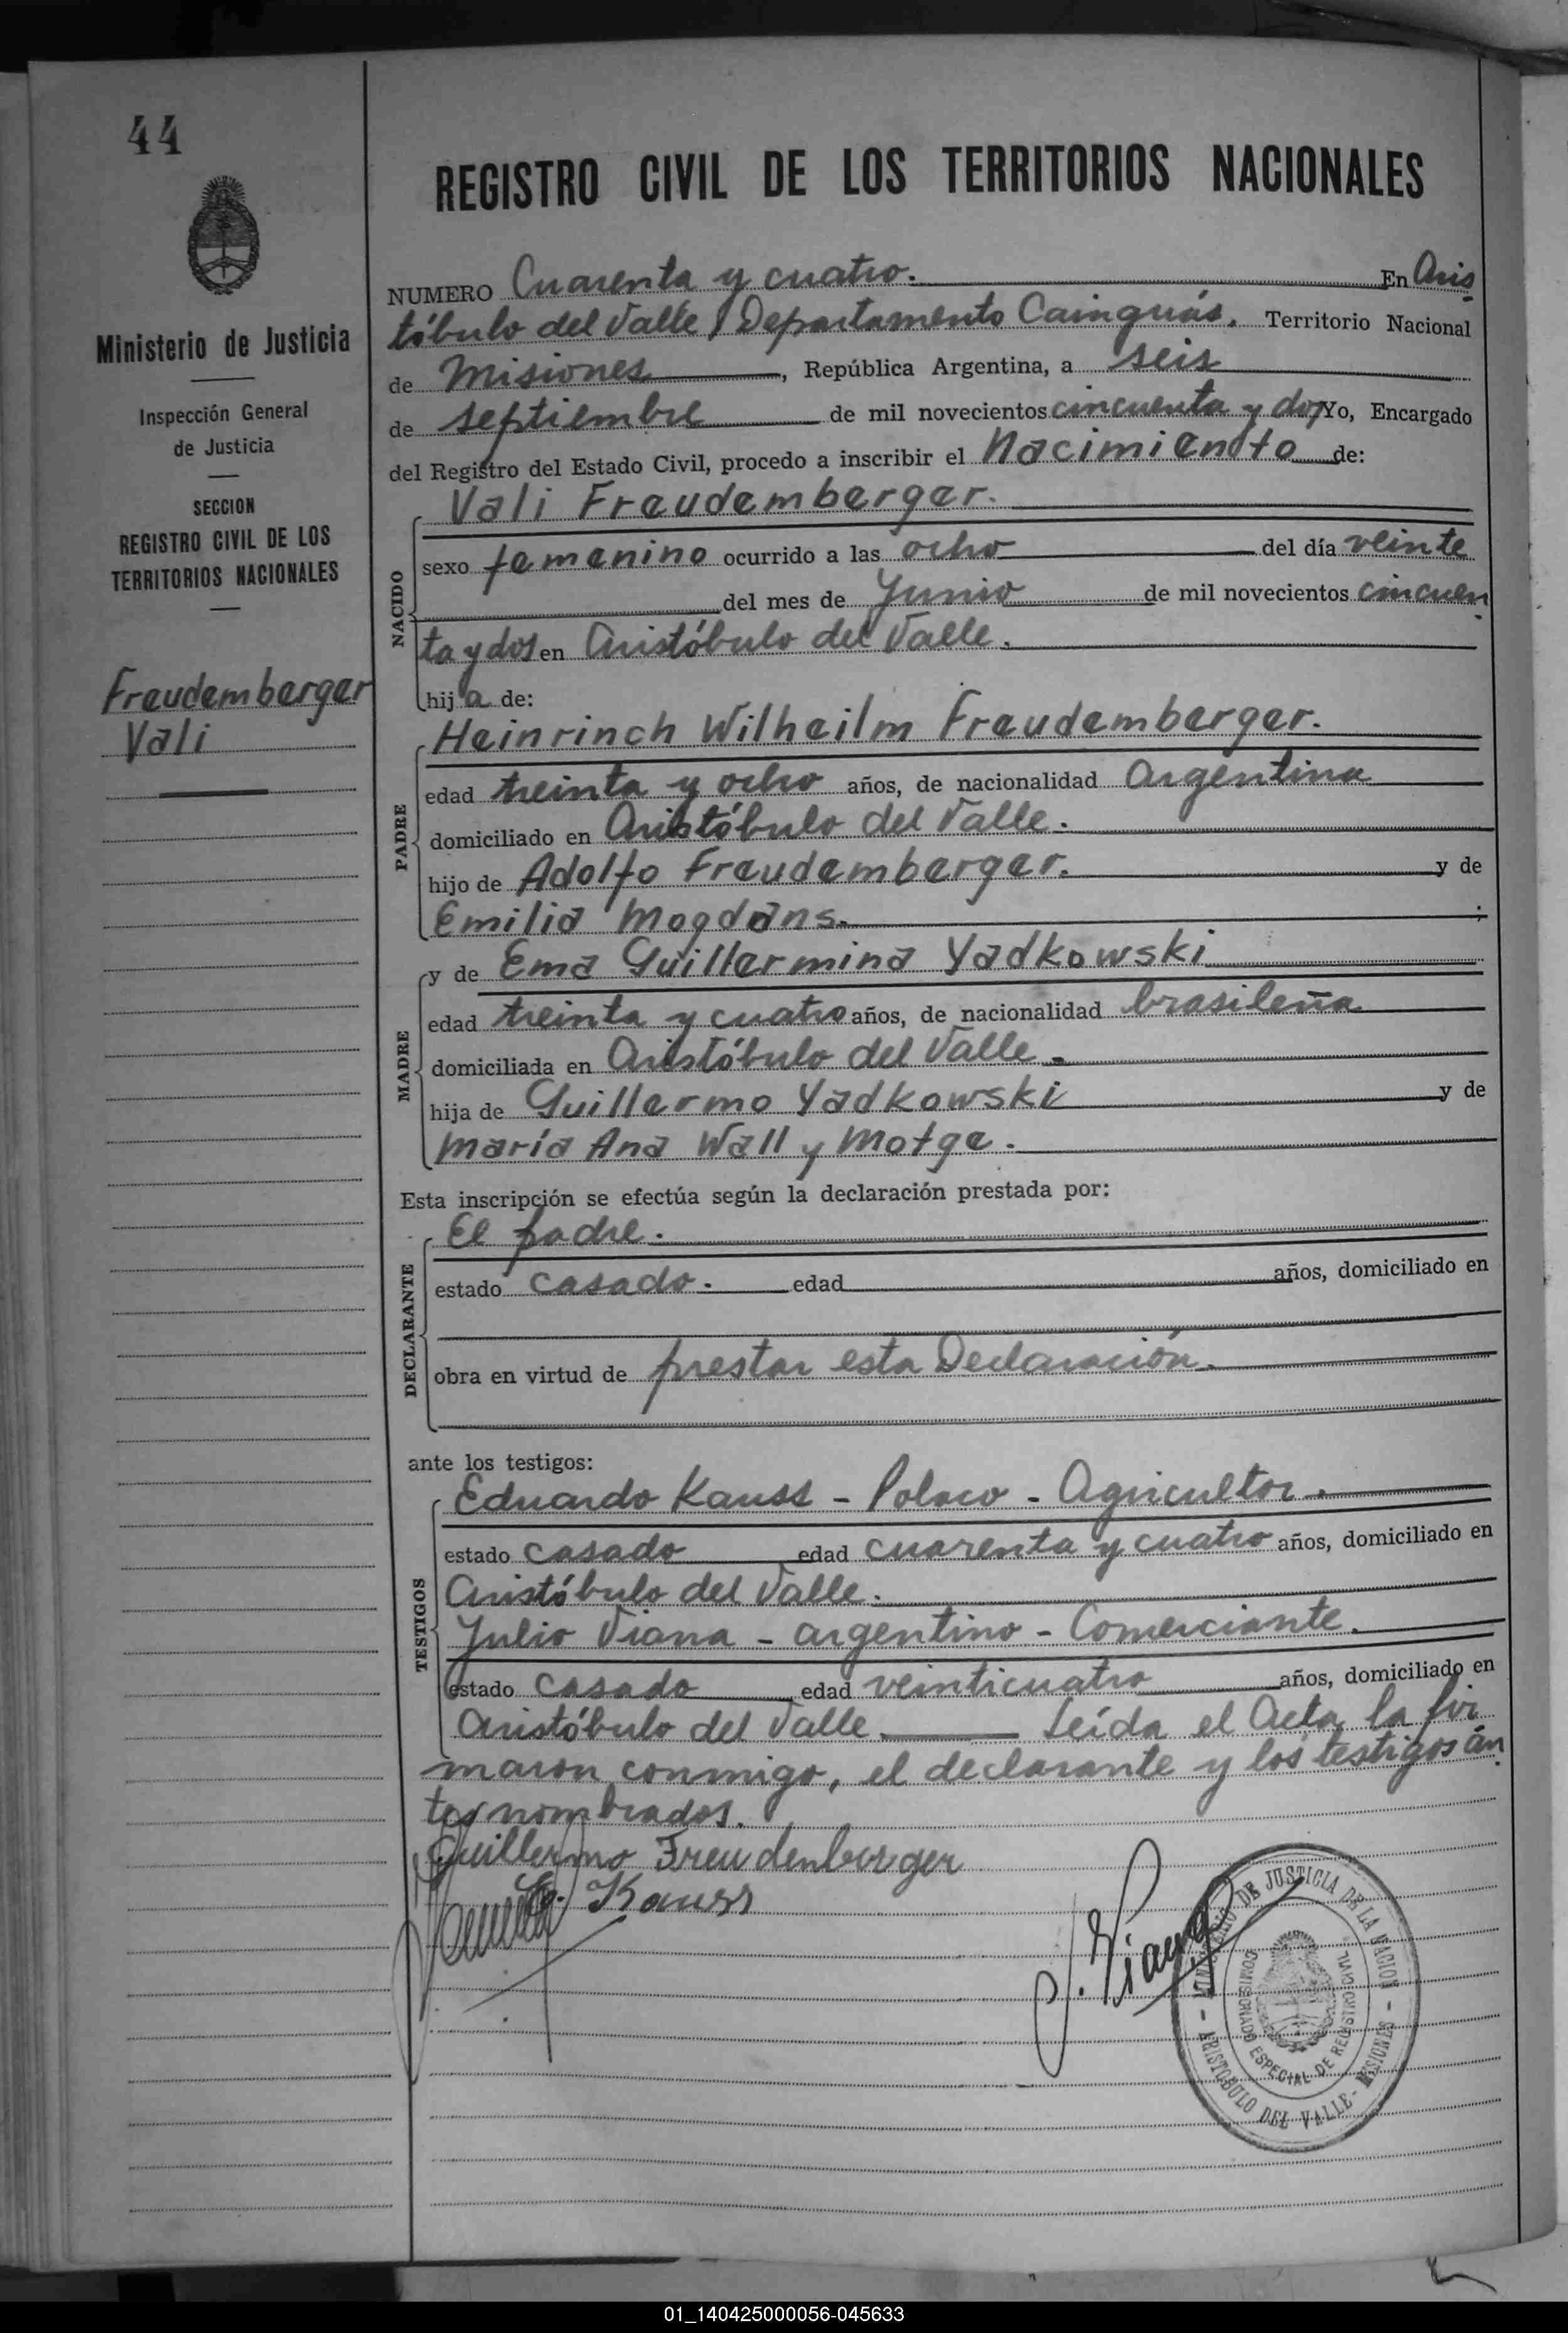 44
Ministerio de Justicia
Inspección General
de Justicia
SECCION
REGISTRO CIVIL DE LOS
TERRITORIOS NACIONALES
Freudemberger
Vali
REGISTRO CIVIL DE LOS TERRITORIOS NACIONALES
NUMERO Cuarenta y cuatro. En Aris
tóbulo del Valle, Departamento Cainguás. Territorio Nacional
de Misiones, República Argentina, a seis
de septiembre de mil novecientos cincuenta y dos, Yo, Encargado
del Registro del Estado Civil, procedo a inscribir el Nacimiento de:
NACIDO
Vali Freudemberger.
sexo femenino ocurrido a las ocho del día veinte
del mes de Junio de mil novecientos cincuen
ta y dos en Aristóbulo del Valle.
hija de:
PADRE
Heinrinch Wilheilm Freudemberger.
edad treinta y ocho años, de nacionalidad Argentina
domiciliado en Aristóbulo del Valle.
hijo de Adolfo Freudemberger. y de
Emilia Mogdans. ;
MADRE
y de Ema Guillermina Yadkowski
edad treinta y cuatro años, de nacionalidad brasileña
domiciliada en Aristóbulo del Valle.
hija de Guillermo Yadkowski y de
María Ana Wall y Motge.
Esta inscripción se efectúa según la declaración prestada por:
DECLARANTE
El padre.
estado casado. edad años, domiciliado en
obra en virtud de prestar esta Declaración.
ante los testigos:
TESTIGOS
Eduardo Kauss - Polaco - Agricultor.
estado casado edad cuarenta y cuatro años, domiciliado en
Aristóbulo del Valle.
Julio Viana - argentino - Comerciante.
estado casado edad veinticuatro años, domiciliado en
Aristóbulo del Valle. Leída el Acta la fir
maron conmigo, el declarante y los testigos án
tes nombrados.
Guillermo Freudenberger
E. Kauss
J. Viana
MINISTERIO DE JUSTICIA DE LA NACION
COMISIONADO ESPECIAL DE REGISTRO CIVIL
- ARISTOBULO DEL VALLE - MISIONES -
01_140425000056-045633